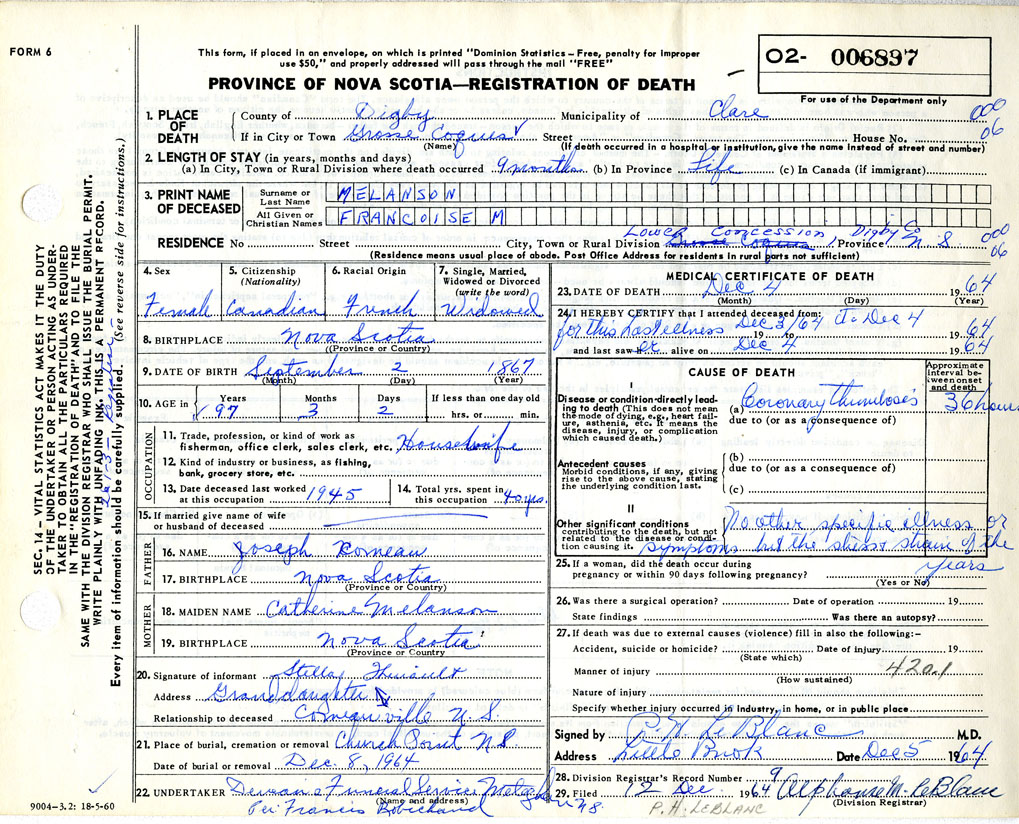 FORM 6
This form, if placed in an envelope, on which is printed "Dominion Statistics – Free, penalty for improper
use $50," and properly addressed will pass through the mail "FREE"
O2- 006897
PROVINCE OF NOVA SCOTIA—REGISTRATION OF DEATH
For use of the Department only
1. PLACE OF DEATH
County of Digby Municipality of Clare 000
06
If in City or Town Grosse Coques Street House No.
(Name) (If death occurred in a hospital or institution, give the name instead of street and number)
2. LENGTH OF STAY (in years, months and days)
(a) In City, Town or Rural Division where death occurred 9 months (b) In Province Life (c) In Canada (if immigrant)
3. PRINT NAME OF DECEASED
Surname or Last Name MELANSON
All Given or Christian Names FRANCOISE M
Lower Concession Digby Co
RESIDENCE No Street City, Town or Rural Division Grosse Coques, Province N S 000
06
(Residence means usual place of abode. Post Office Address for residents in rural parts not sufficient)
SEC. 14 – VITAL STATISTICS ACT MAKES IT THE DUTY
OF THE UNDERTAKER OR PERSON ACTING AS UNDER-
TAKER TO OBTAIN ALL THE PARTICULARS REQUIRED
IN THE "REGISTRATION OF DEATH" AND TO FILE THE
SAME WITH THE DIVISION REGISTRAR WHO SHALL ISSUE THE BURIAL PERMIT.
WRITE PLAINLY WITH UNFADING INK. THIS IS A PERMANENT RECORD.
Every item of information should be carefully supplied. (See reverse side for instructions.)
4. Sex
Female
5. Citizenship
(Nationality)
Canadian
6. Racial Origin
French
7. Single, Married,
Widowed or Divorced
(write the word)
Widowed
8. BIRTHPLACE Nova Scotia
(Province or Country)
9. DATE OF BIRTH September 2 1867
(Month) (Day) (Year)
10. AGE in Years Months Days If less than one day old
97 3 2 hrs. or min.
OCCUPATION
11. Trade, profession, or kind of work as
fisherman, office clerk, sales clerk, etc. Housewife
12. Kind of industry or business, as fishing,
bank, grocery store, etc.
13. Date deceased last worked at this occupation 1945
14. Total yrs. spent in this occupation 40 yrs.
15. If married give name of wife
or husband of deceased
FATHER
16. NAME Joseph Comeau
17. BIRTHPLACE Nova Scotia
(Province or Country)
MOTHER
18. MAIDEN NAME Catherine Melanson
19. BIRTHPLACE Nova Scotia
(Province or Country
20. Signature of informant Stella Thiriault
Address Granddaughter
Relationship to deceased Comeauville N.S.
21. Place of burial, cremation or removal Church Point N S
Date of burial or removal Dec. 8, 1964
22. UNDERTAKER Funeral Service
(Name and address) N S
Per Francis Robichaud
9004-3.2: 18-5-60
MEDICAL CERTIFICATE OF DEATH
23. DATE OF DEATH Dec 4 1964
(Month) (Day) (Year)
24. I HEREBY CERTIFY that I attended deceased from:
for this last illness Dec 3/64 19 to Dec 4 1964
and last saw er alive on Dec 4 1964
CAUSE OF DEATH
Approximate
interval be-
tween onset
and death
I
Disease or condition directly lead-
ing to death (This does not mean
the mode of dying, e.g., heart fail-
ure, asthenia, etc. It means the
disease, injury, or complication
which caused death.)
(a) Coronary Thrombosis 36 hours
due to (or as a consequence of)
Antecedent causes
Morbid conditions, if any, giving
rise to the above cause, stating
the underlying condition last.
(b)
due to (or as a consequence of)
(c)
II
Other significant conditions
contributing to the death, but not
related to the disease or condi-
tion causing it.
No other specific illness or
symptoms but the stress strain of the
years
25. If a woman, did the death occur during
pregnancy or within 90 days following pregnancy?
(Yes or No)
26. Was there a surgical operation? Date of operation 19
State findings Was there an autopsy?
27. If death was due to external causes (violence) fill in also the following:–
Accident, suicide or homicide? Date of injury 19
(State which)
Manner of injury 420.1
(How sustained)
Nature of injury
Specify whether injury occurred in industry, in home, or in public place
Signed by P. H. LeBlanc M.D.
Address Little Brook Date Dec 5 1964
28. Division Registrar's Record Number 9
29. Filed 12 Dec. 1964 Alphonse M. LeBlanc
(Division Registrar)
P. H. LEBLANC